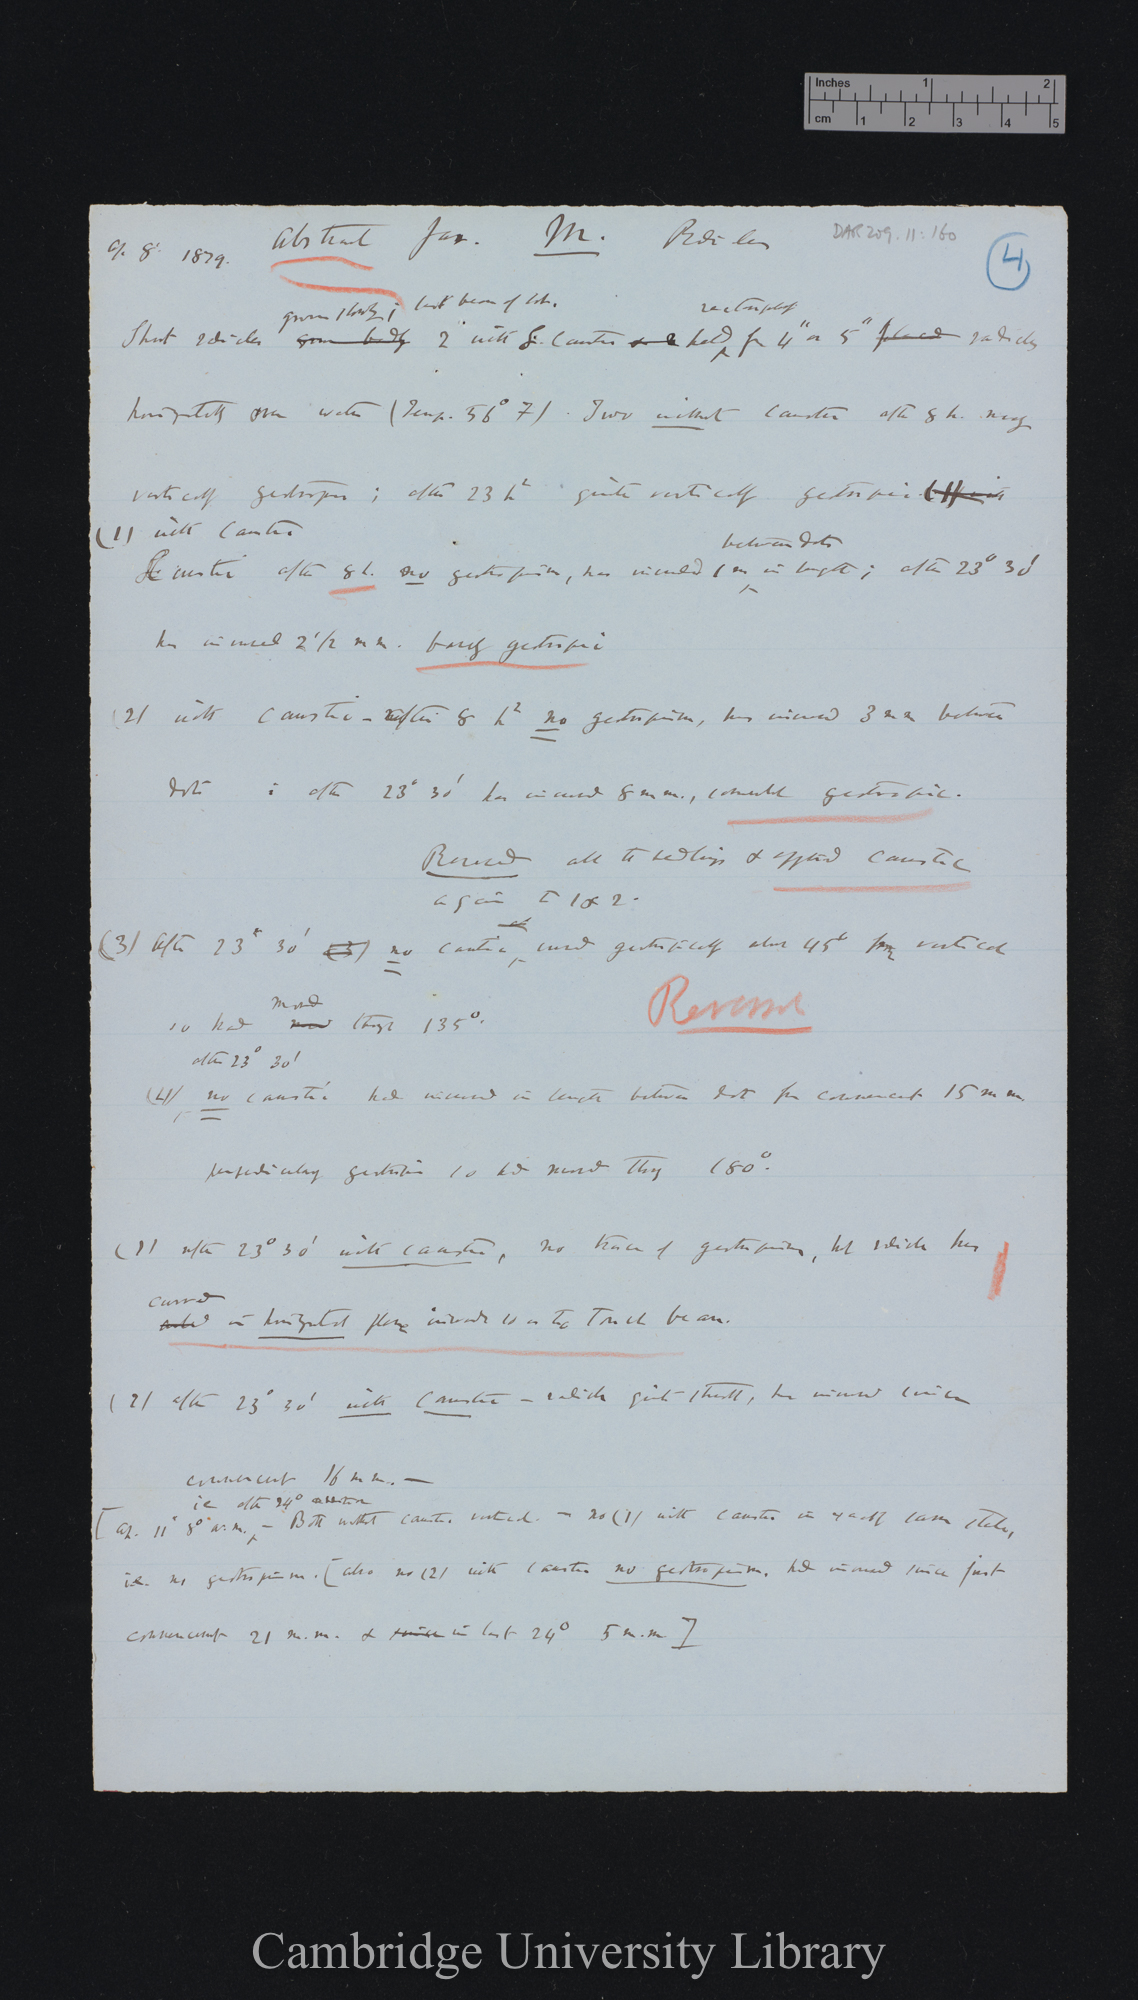 Inches 1 2
cm 1 2 3 4 5
Ap. 8. 1879. Abstract for. M. Radicles DAR 209.11:160 4
grown slowly; last bean of lot. 
Short radicles 2 with Caustic held for 4" or 5" radicles
horizontally over water (Temp. 56° F). Two without Caustic after 8 h. nearly
vertically geotropic; after 23 h quite vertically geotropic
(1) with Caustic
between dots
Caustic after 8 h. no geotropism, has increased 1 m in length; after 23° 30'
has increased 2 1/2 mm. barely geotropic
(2) with Caustic – after 8 h no geotropism, has increased 3 mm between
dots; after 23° 30' has increased 8 mm., geotropic.
Reversed all the seedlings & applied Caustic
again to 1 & 2.
(3) After 23° 30' (3) no caustic, curved geotropically about 45° from vertical
Reversed
moved
so had moved through 135°.
after 23° 30'
(4) no caustic had increased in length between dots from commencement 15 mm
perpendicularly geotropic so had moved through 180°.
(1) after 23° 30' with caustic, no trace of geotropism, but radicle has
curved
in horizontal plane inwards so as to touch bean.
(2) after 23° 30' with Caustic – radicle quite straight, has increased since
commencement 16 mm. —
i.e. after 24°
[Ap. 11° 8° a.m. – Both without caustic vertical. – no (1) with caustic in exactly same state,
i.e. no geotropism. [also no (2) with Caustic no geotropism, had increased since first
commencement 21 m.m. & since in last 24° 5 m.m.]
Cambridge University Library